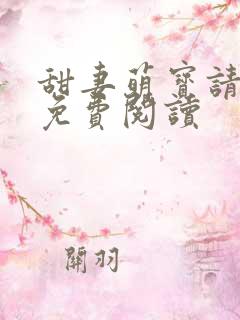 甜妻萌寶請
免費閱讀
關羽